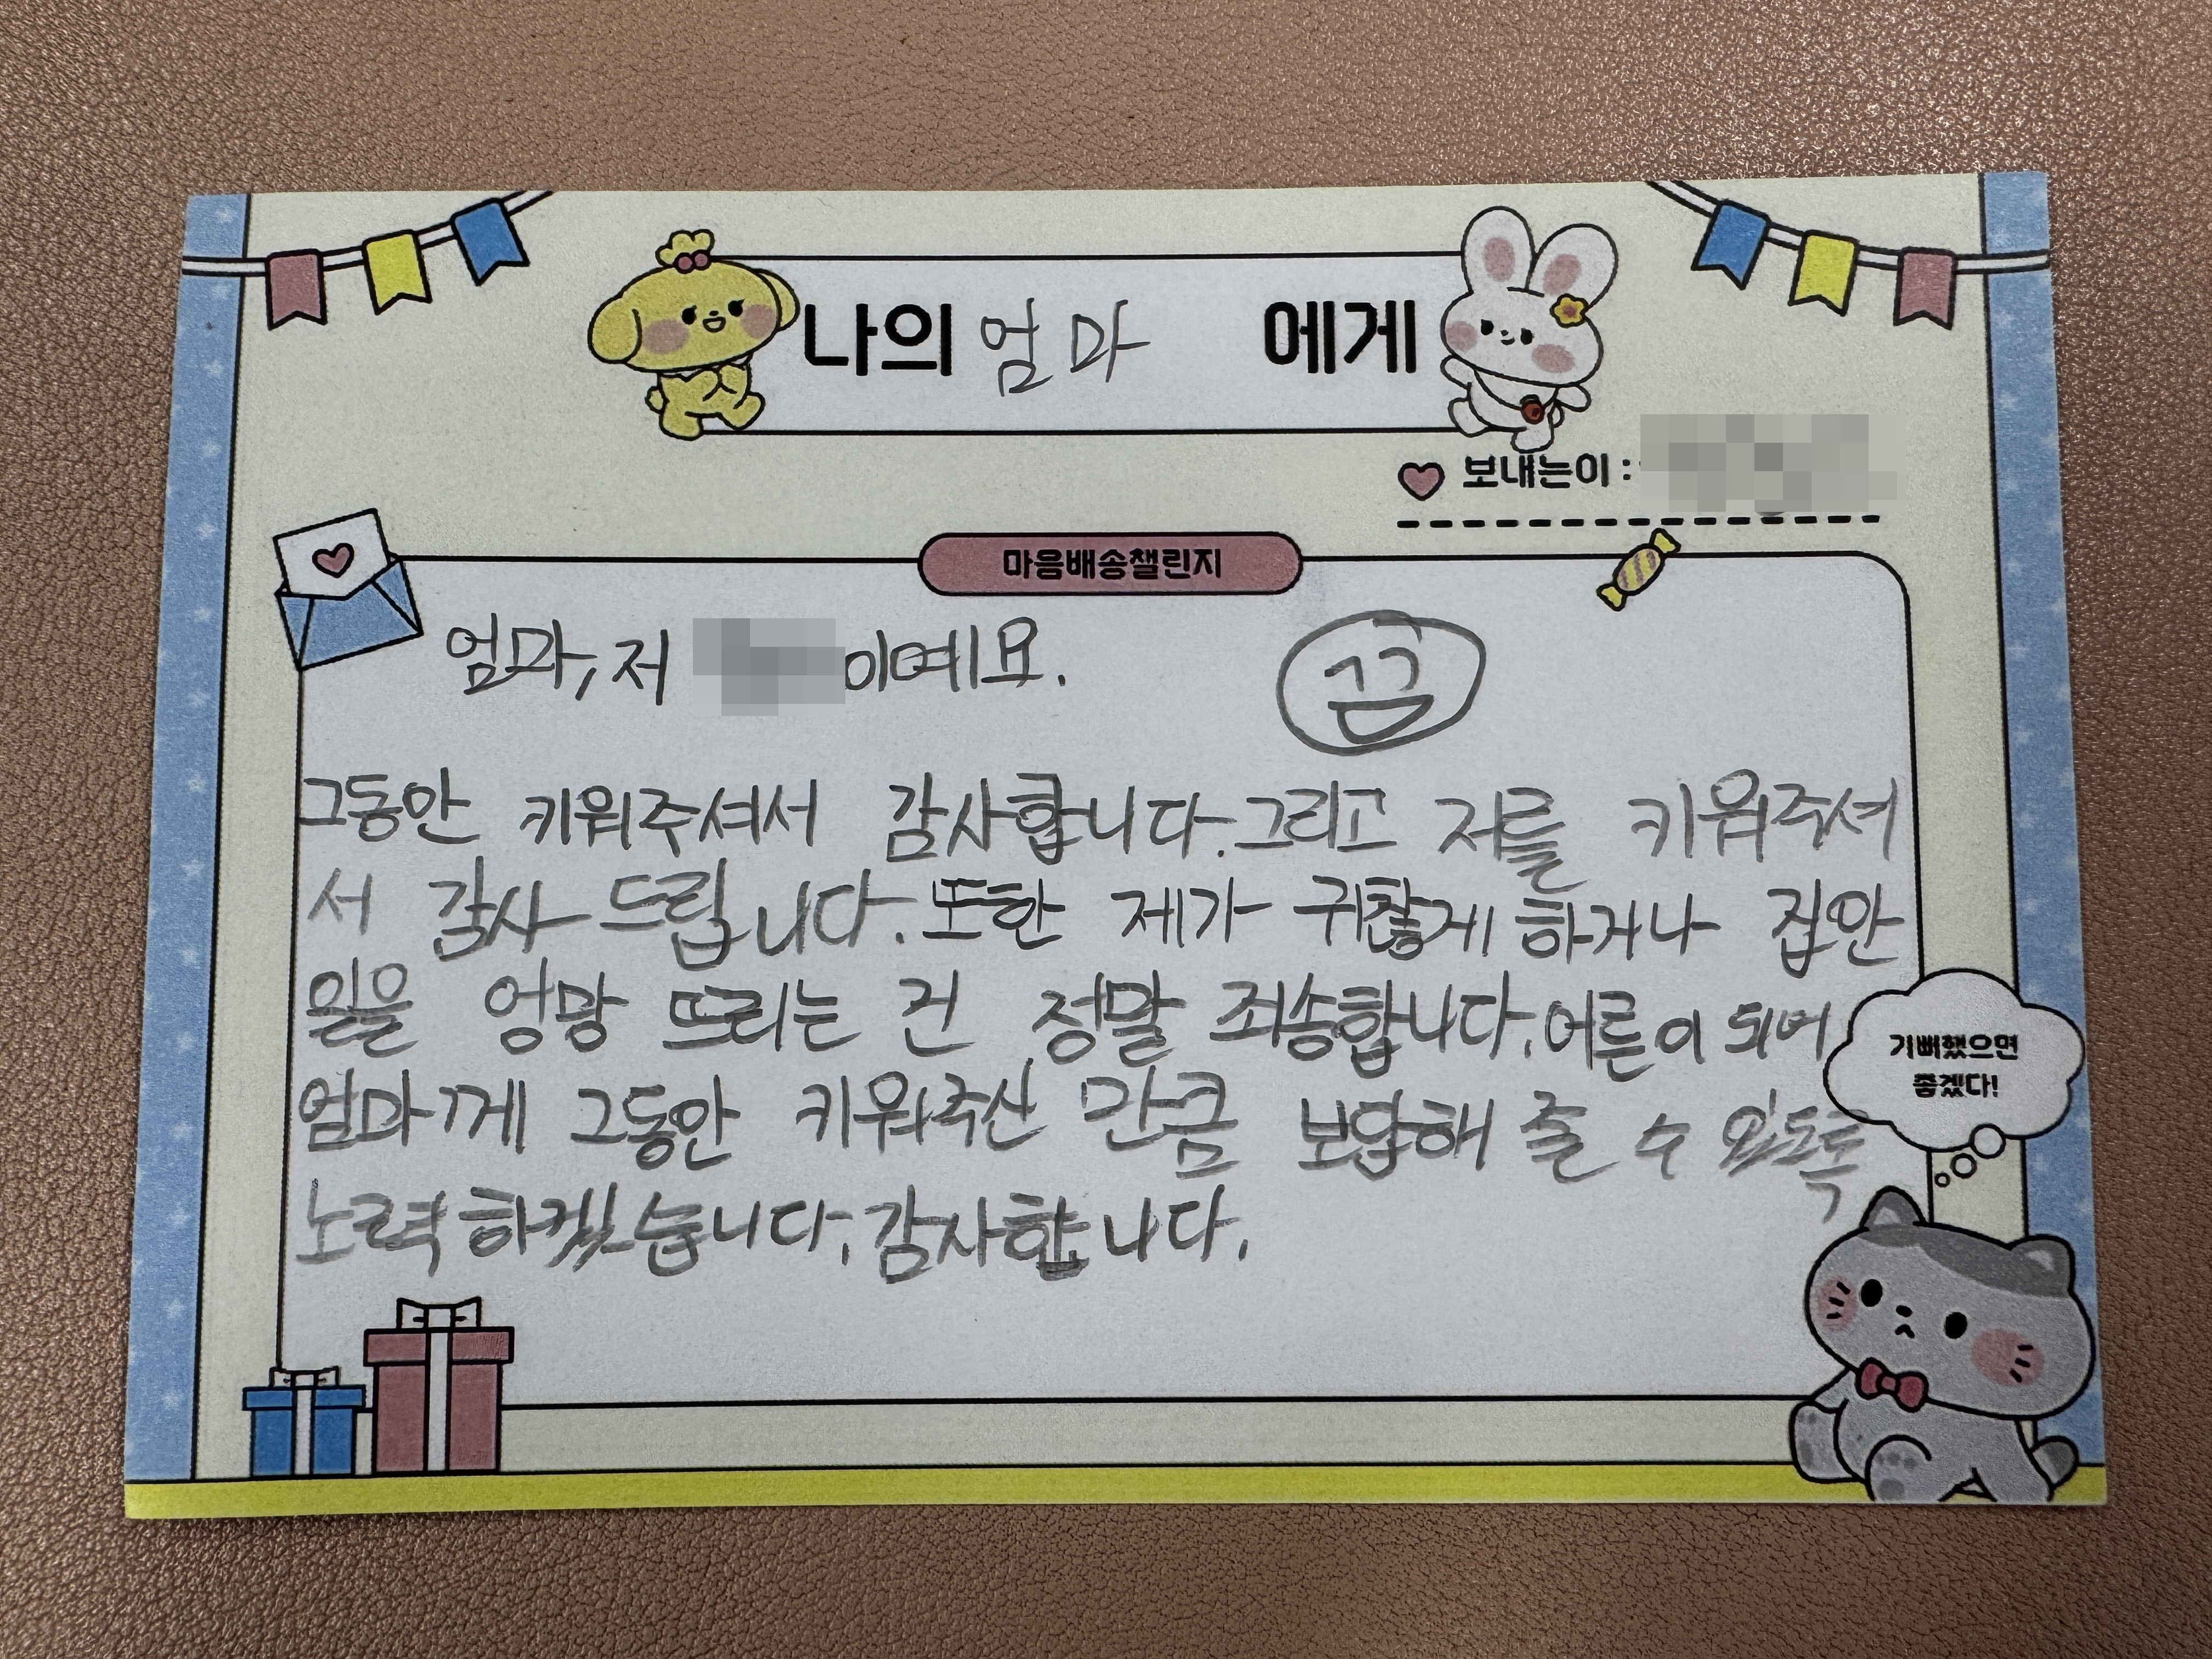 나의 엄마 에게
보내는이 :
마음배송챌린지
엄마, 저 이예요.
끔
그동안 키워주셔서 감사합니다. 그리고 저를 키워주셔
서 감사 드립니다. 또한 제가 귀찮게 하거나 집안
일을 엉망 뜨리는 건 정말 죄송합니다. 어른이 되어
엄마께 그동안 키워주신 만큼 보답해 줄 수 있도록
노력하겠습니다. 감사합니다.
기뻐했으면
좋겠다!